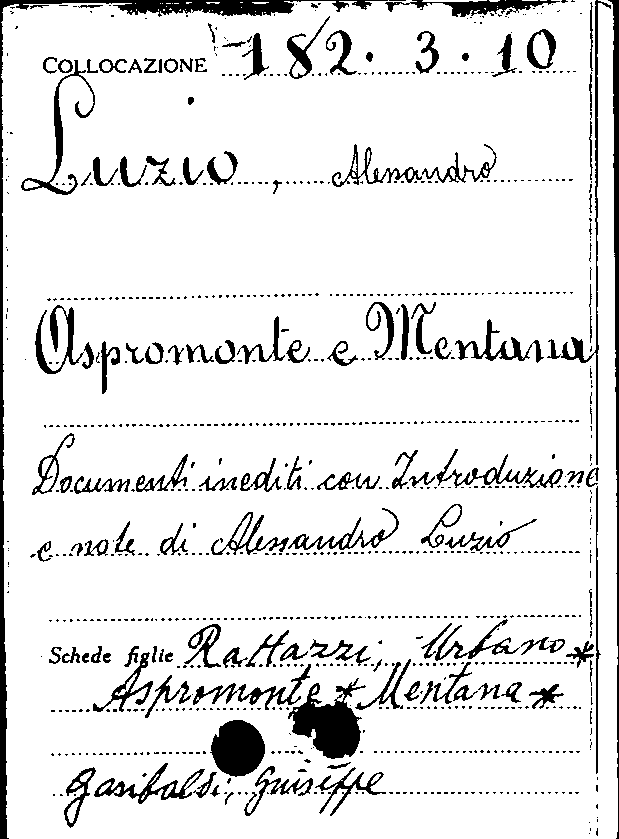 COLLOCAZIONE 182. 3. 10
Luzio, Alessandro
Aspromonte e Mentana
Documenti inediti con Introduzione
e note di Alessandro Luzio
Schede figlie Rattazzi, Urbano *
Aspromonte * Mentana *
Garibaldi, Giuseppe